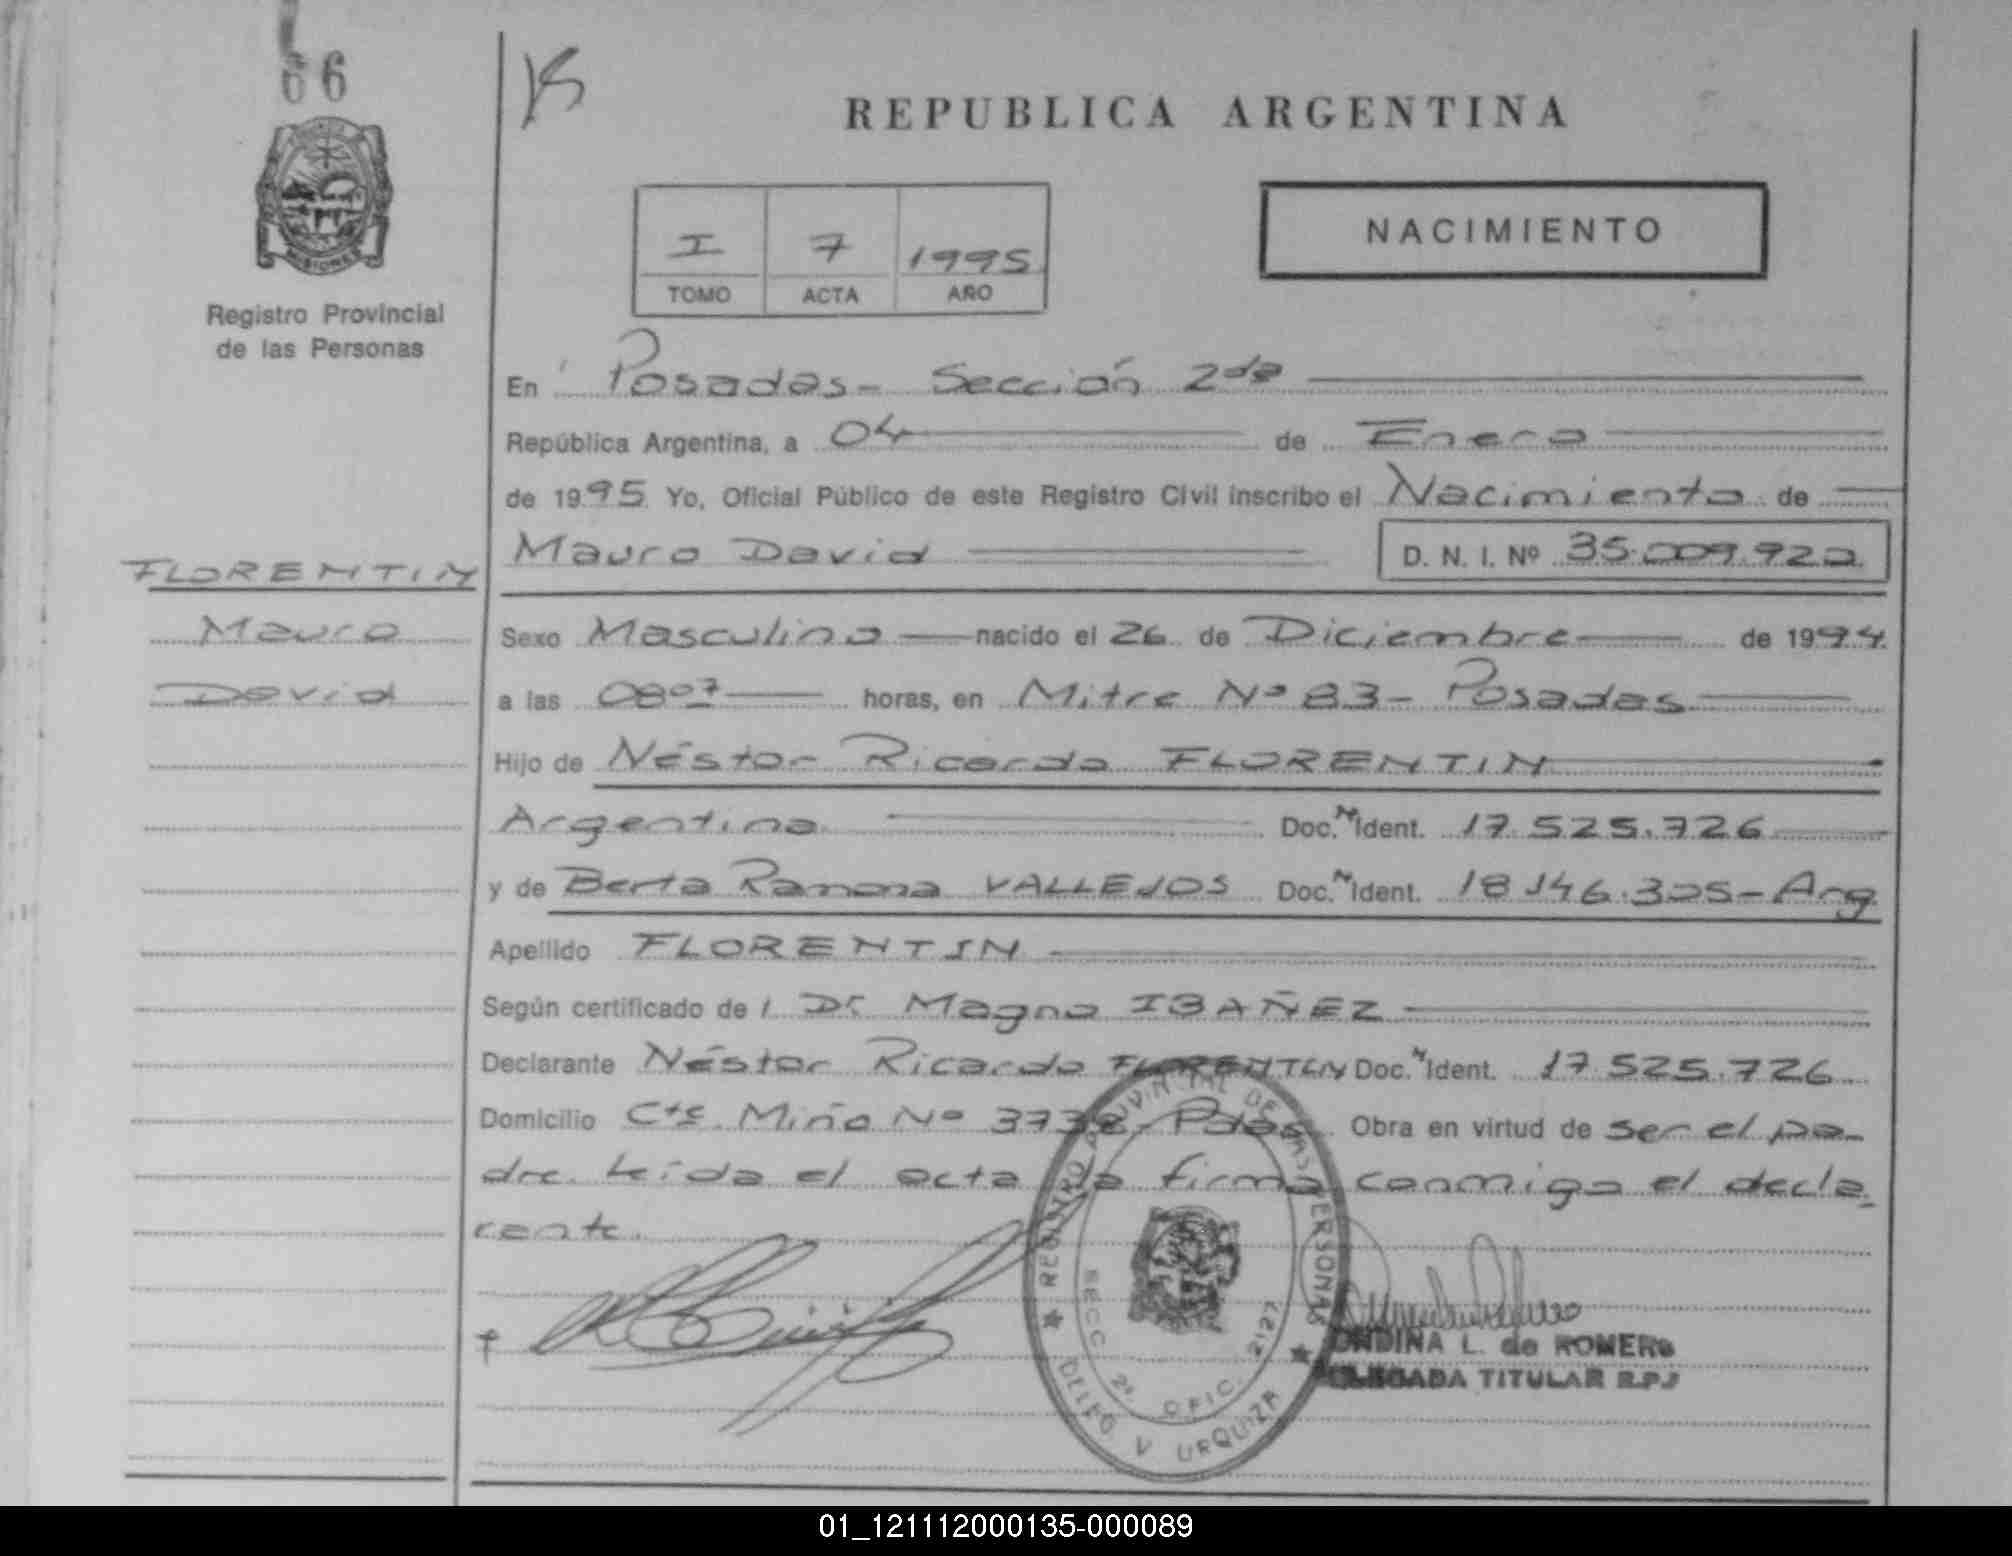 66
REPUBLICA ARGENTINA
MISIONES
Registro Provincial
de las Personas
I 7 1995
TOMO ACTA AÑO
NACIMIENTO
En Posadas- Sección 2da
República Argentina, a 04 de Enero
de 1995 Yo, Oficial Público de este Registro Civil inscribo el Nacimiento de
Mauro David D. N. I. Nº 35.009.922
FLORENTIN
Mauro
David
Sexo Masculino nacido el 26 de Diciembre de 1994.
a las 08º7 horas, en Mitre Nº 83- Posadas
Hijo de Néstor Ricardo FLORENTIN
Argentino Doc. N Ident. 17.525.726
y de Berta Ramona VALLEJOS Doc. N Ident. 18.146.305-Arg
Apellido FLORENTIN
Según certificado de l Dr. Magno IBAÑEZ
Declarante Néstor Ricardo FLORENTIN Doc. N Ident. 17.525.726
Domicilio Cte. Miño Nº 3738-Pdas Obra en virtud de ser el pa-
dre. Leída el acta la firma conmigo el decla-
rante.
REGISTRO PROVINCIAL DE LAS PERSONAS
SECC. 2ª OFIC. 2127
DELEG V URQUIZA
ONDINA L. de ROMERO
DELEGADA TITULAR R.P.P
01_121112000135-000089